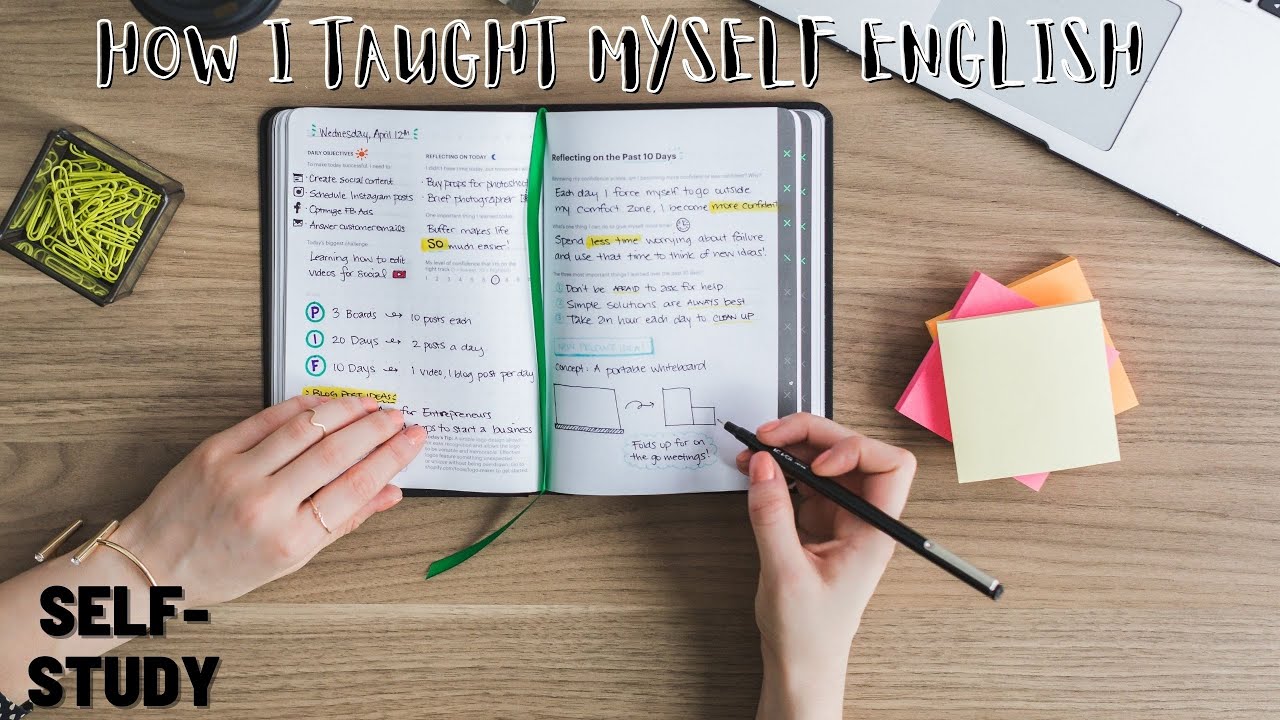 HOW I TAUGHT MYSELF ENGLISH
Wednesday, April 12th
DAILY OBJECTIVES
To make today successful, I need to:
Create social content
Schedule Instagram posts
Optimize FB Ads
Answer customer emails
Today's biggest challenge
Learning how to edit
videos for social
P 3 Boards → 10 posts each
I 20 Days → 2 posts a day
F 10 Days → 1 video, 1 blog post per day
BLOG POST IDEAS:
for Entrepreneurs
to start a business
REFLECTING ON TODAY
Buy props for photoshoot
Brief photographer
One important thing I learned today
Buffer makes life
SO much easier!
My level of confidence that I'm on the
1 2 3 4 5 6 7 8 9
Reflecting on the Past 10 Days
Each day I force myself to go outside
my comfort zone, I become more confident
Spend less time worrying about failure
and use that time to think of new ideas!
The three most important things I learned over the past 10 days
1 Don't be AFRAID to ask for help
2 Simple solutions are ALWAYS best
3 Take an hour each day to CLEAN UP
NEW PRODUCT IDEA!
Concept: A portable whiteboard
Folds up for on
the go meetings!
SELF-
STUDY